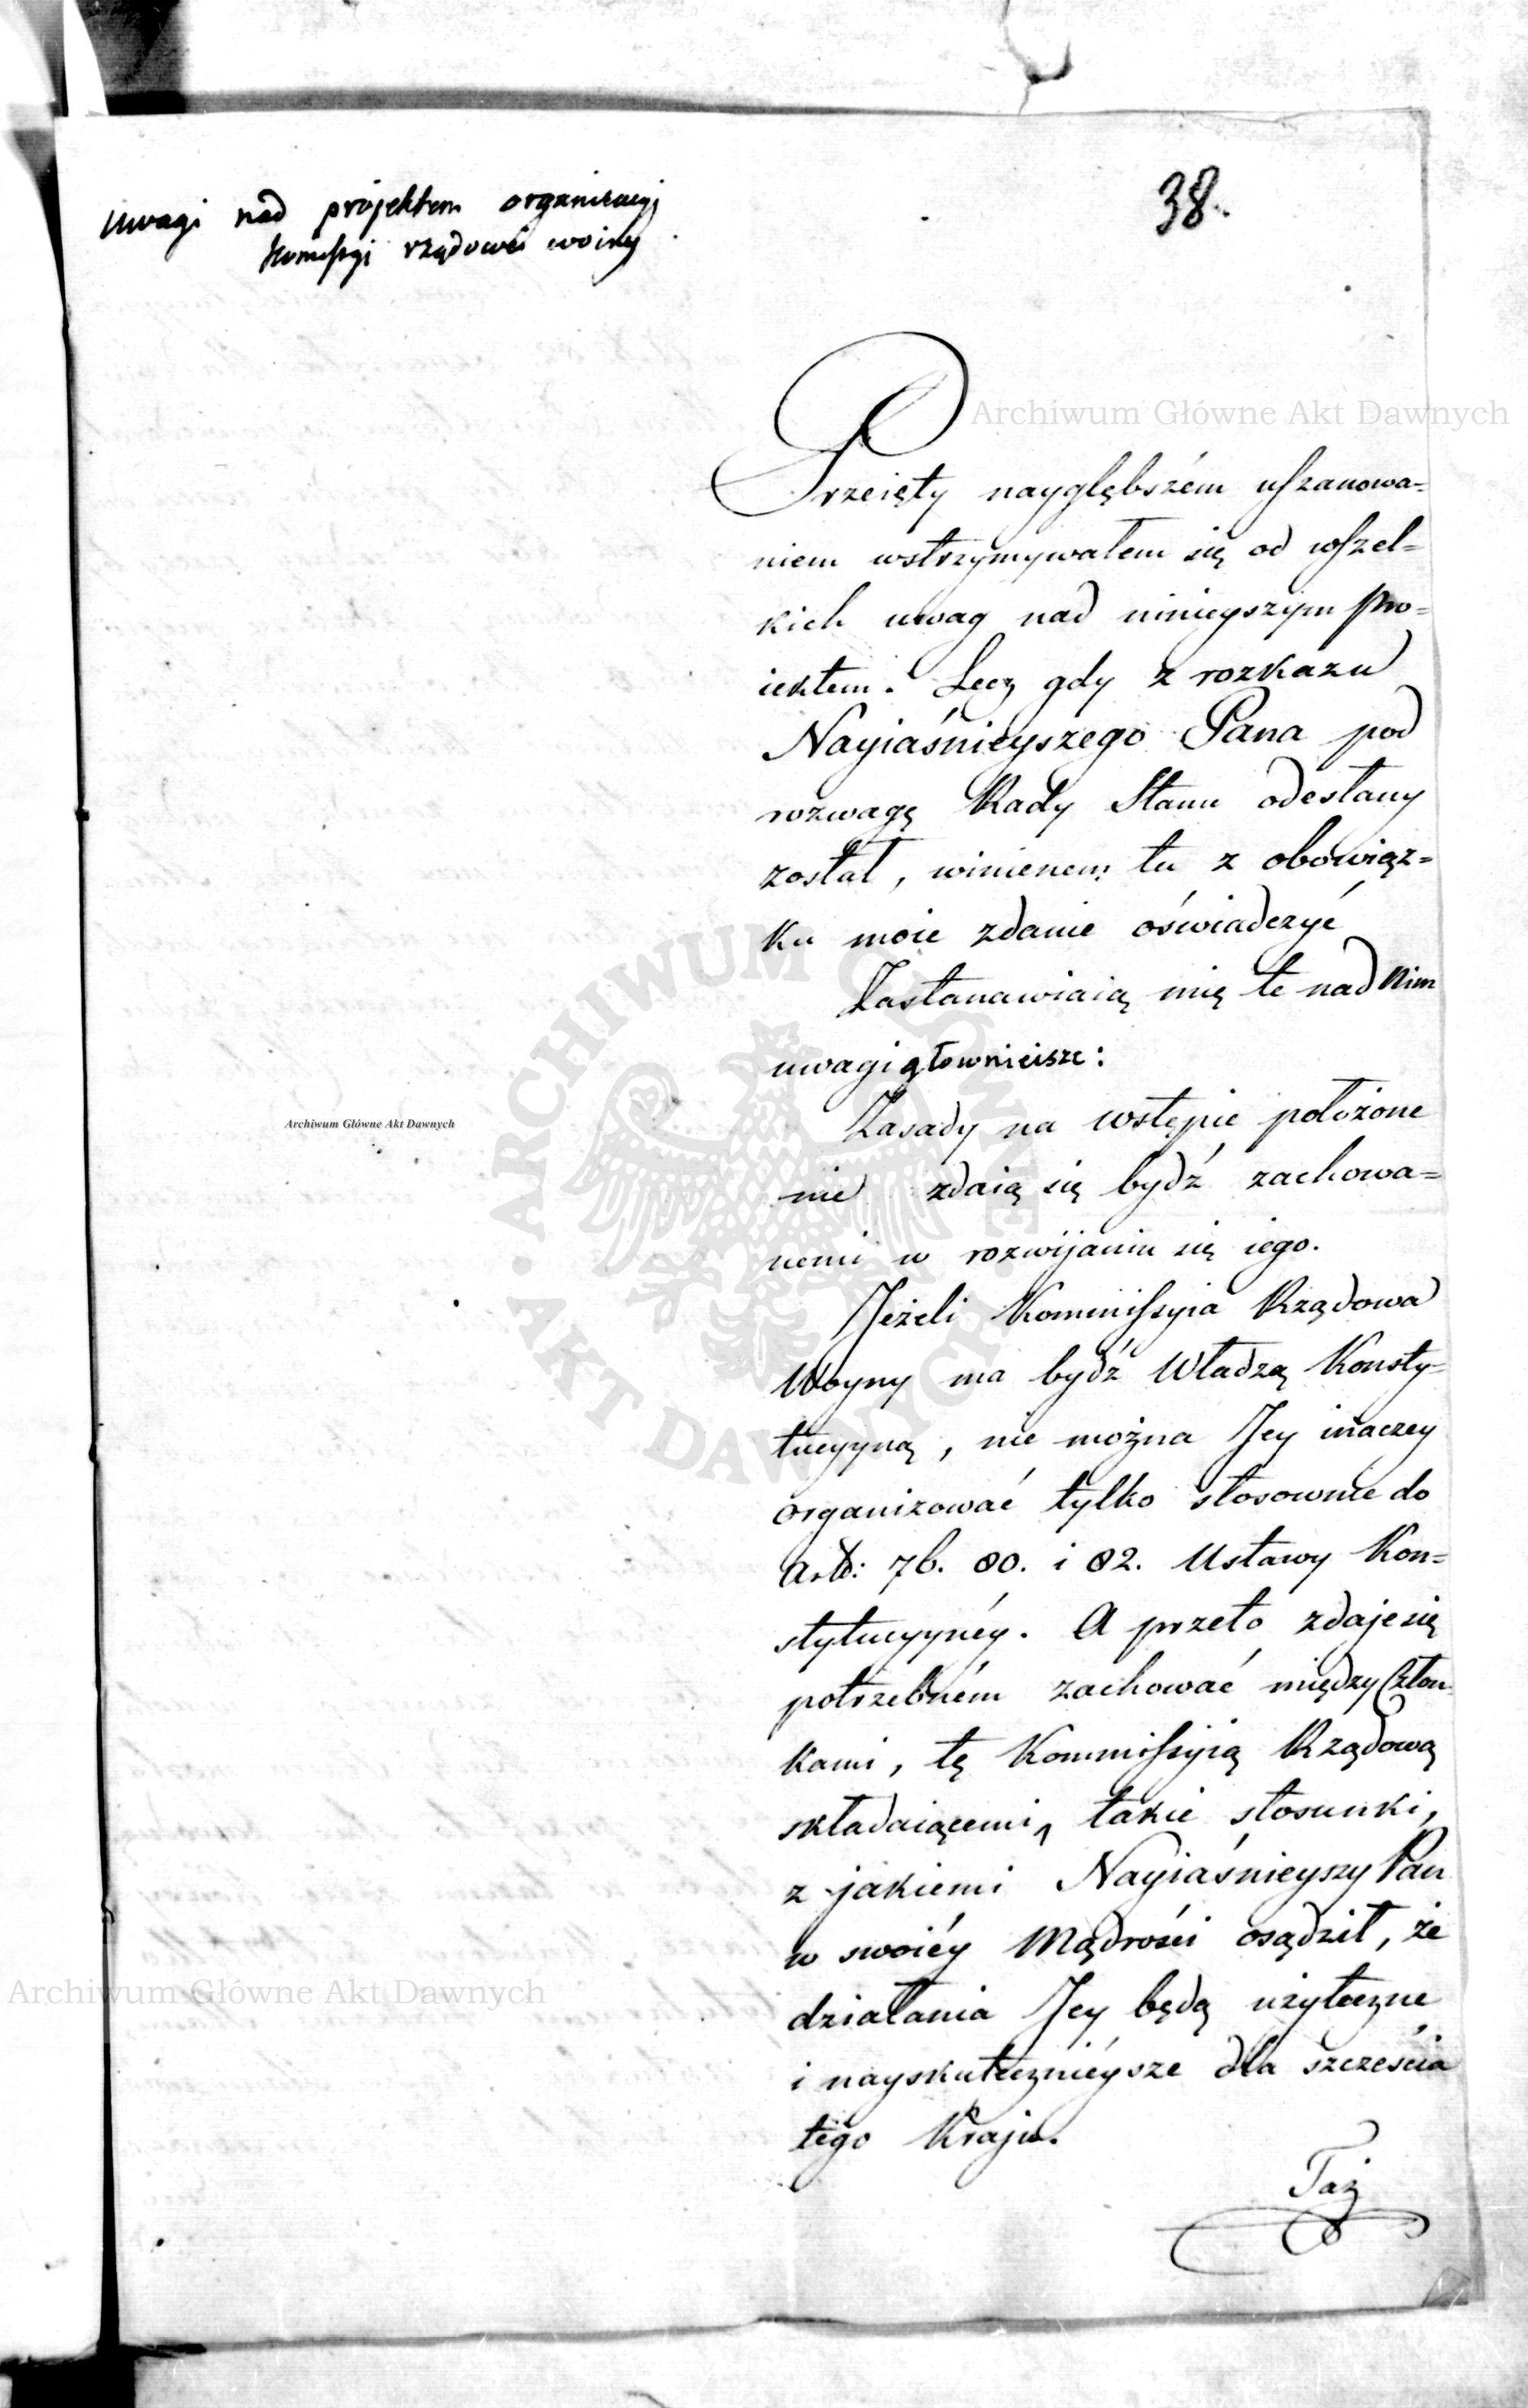 Uwagi nad projektem organizacyi
Komissyi rządowéi woiny
38.
Przeięty naygłębszém uszanowa=
niem wstrzymywałem się od wszel=
kich uwag nad ninieyszym pro=
iektem. Lecz gdy z rozkazu
Nayiaśnieyszego Pana pod
rozwagę Rady Stanu odesłany
został, winienem tu z obowiąz=
ku moie zdanie oświadczyć
Zastanawiaią mię te nad nim
uwagi głownieisze:
Zasady na wstępie położone
nie zdaią się bydź zachowa=
nemi w rozwijaniu się iego.
Jeżeli Kommissyia Rządowa
Woyny ma bydź Władzą Konsty=
tucyyną, nie można Jey inaczey
organizować tylko stosownie do
Artt: 76. 80. i 82. Ustawy Kon=
stytucyynéy. A przeto zdaje się
potrzebném zachować między Człon=
kami, tę Kommissyią Rządową
składaiącemi, takie stosunki,
z jakiemi Nayiaśnieyszy Pan
w swoiéy Mądrości osądził, że
działania Jey będą użyteczne
i nayskutecznieysze dla szczęścia
tego Kraju.
Taż
Archiwum Główne Akt Dawnych
Archiwum Główne Akt Dawnych
Archiwum Główne Akt Dawnych
ARCHIWUM GŁÓWNE • AKT DAWNYCH •